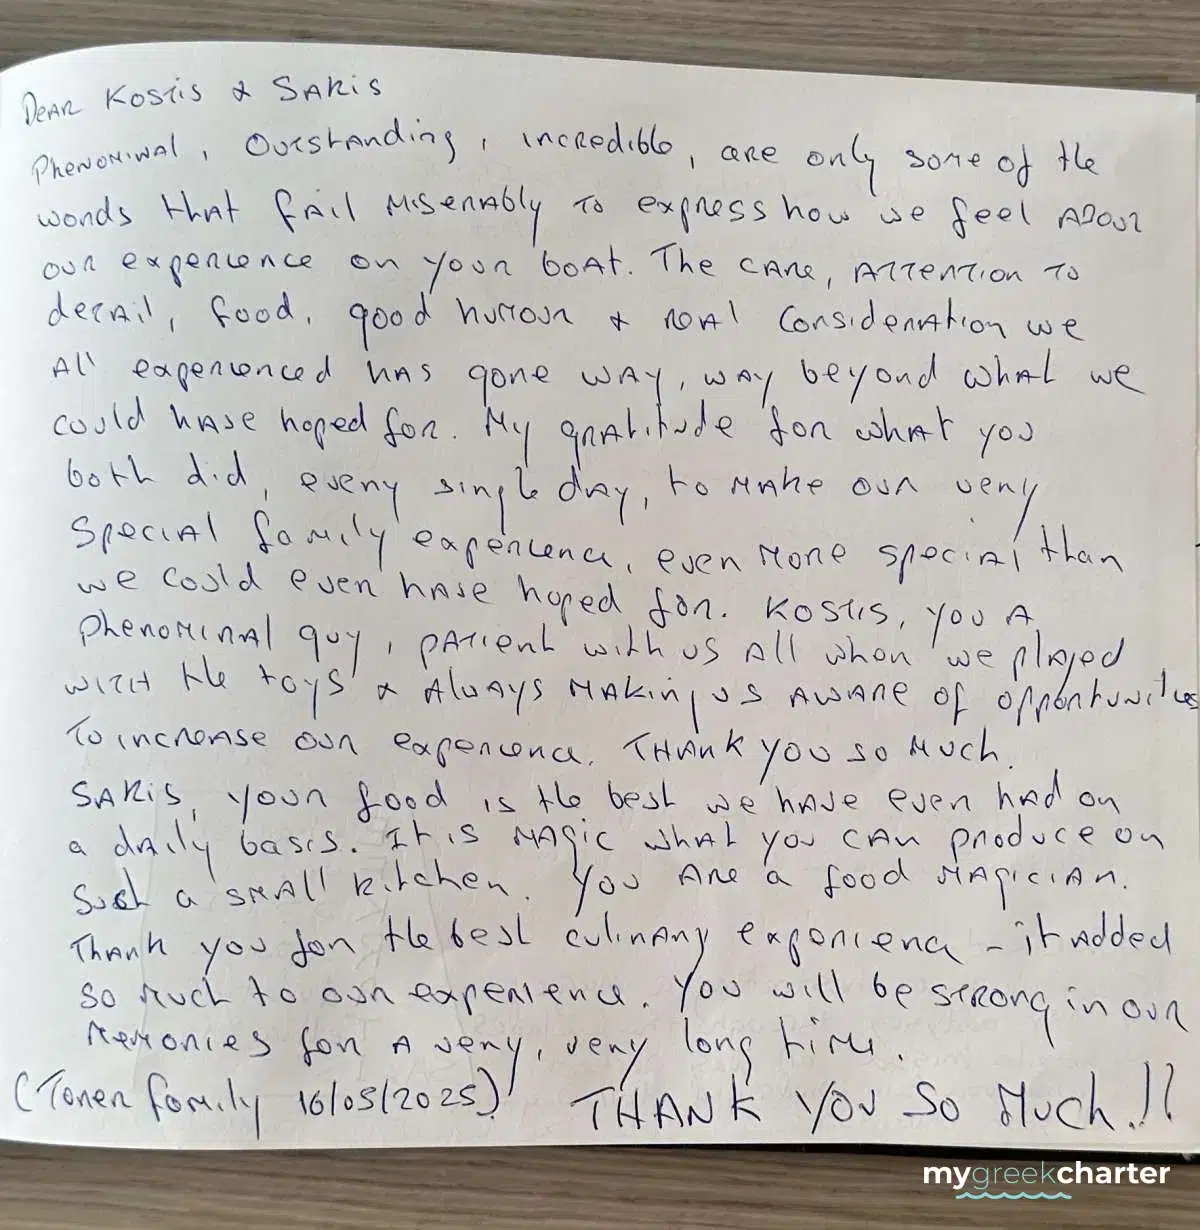 Dear Kostis & Sakis
Phenominal, Outstanding, incredible, are only some of the
words that fail miserably to express how we feel about
our experience on your boat. The care, attention to
detail, food, good humour & real consideration we
all experienced has gone way, way beyond what we
could have hoped for. My gratitude for what you
both did, every single day, to make our very
special family experience, even more special than
we could even have hoped for. Kostis, you a
phenominal guy, patient with us all when we played
with the toys & always making us aware of opportunities
to increase our experience. Thank you so much.
Sakis, your food is the best we have ever had on
a daily basis. It is magic what you can produce on
such a small kitchen. You are a food magician.
Thank you for the best culinary experience - it added
so much to our experience. You will be strong in our
memories for a very, very long time.
(Toner family 16/05/2025) THANK YOU SO MUCH!!
mygreekcharter